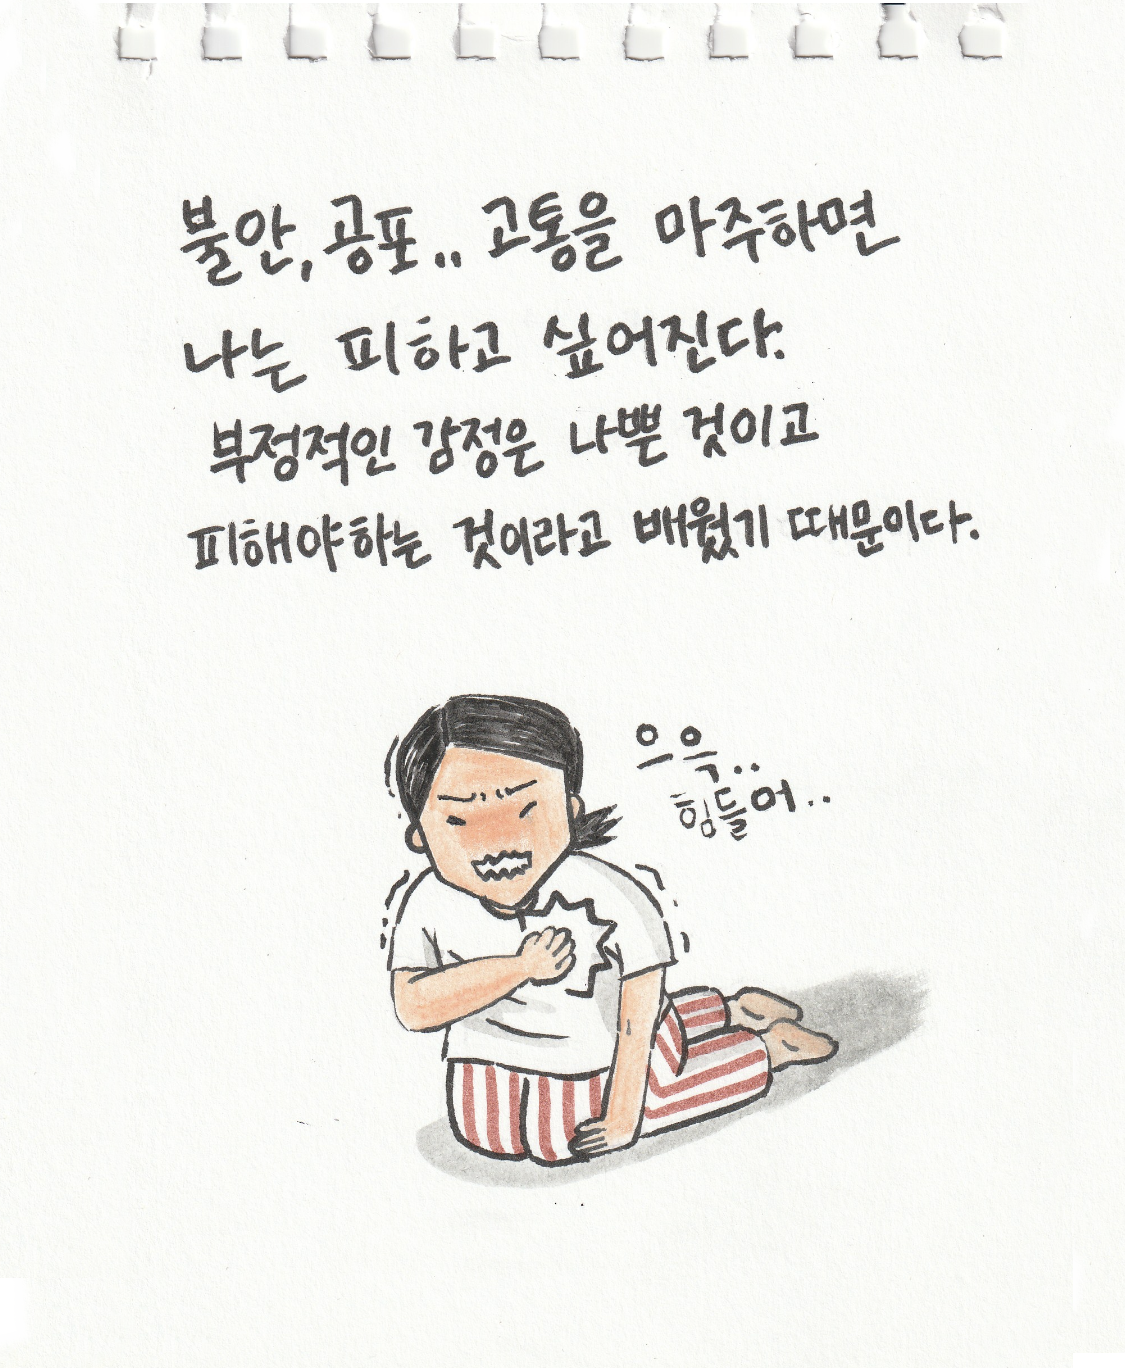 불안, 공포.. 고통을 마주하면
나는 피하고 싶어진다.
부정적인 감정은 나쁜 것이고
피해야하는 것이라고 배웠기 때문이다.
으윽..
힘들어..